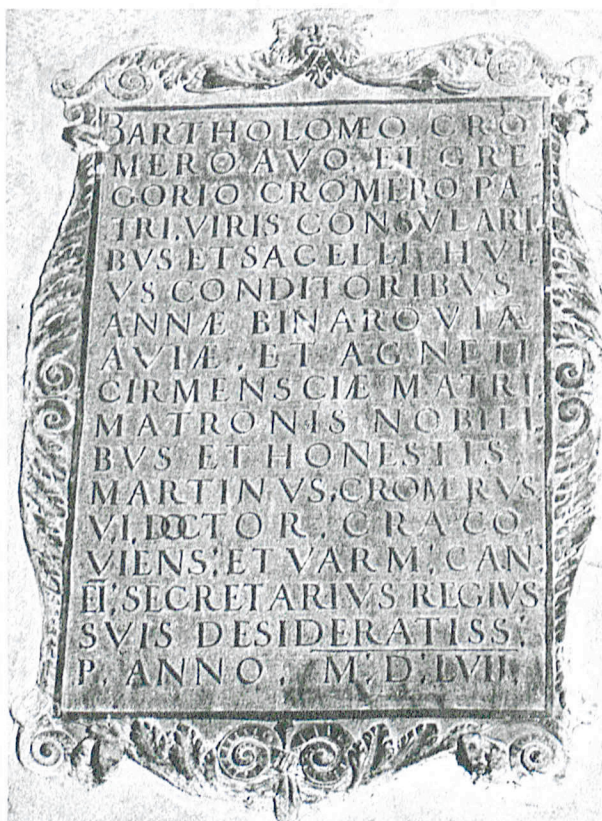 BARTHOLOMÆO. CRO
MERO AVO, ET GRE
GORIO CROMERO PA
TRI, VIRIS CONSVLARI,
BVS ET SACELLI, HVI,
VS CONDITORIBVS
ANNÆ BINAROVIÆ
AVIÆ, ET AGNETI
CIRMENSCIÆ MATRI,
MATRONIS NOBILI,
BVS ET HONESTIS
MARTINVS, CROMERVS
VI, DOCTOR, CRACO,
VIENS, ET VARM, CAN,
EI, SECRETARIVS REGIVS
SVIS DESIDERATISS,
P. ANNO, M, D, LVII,